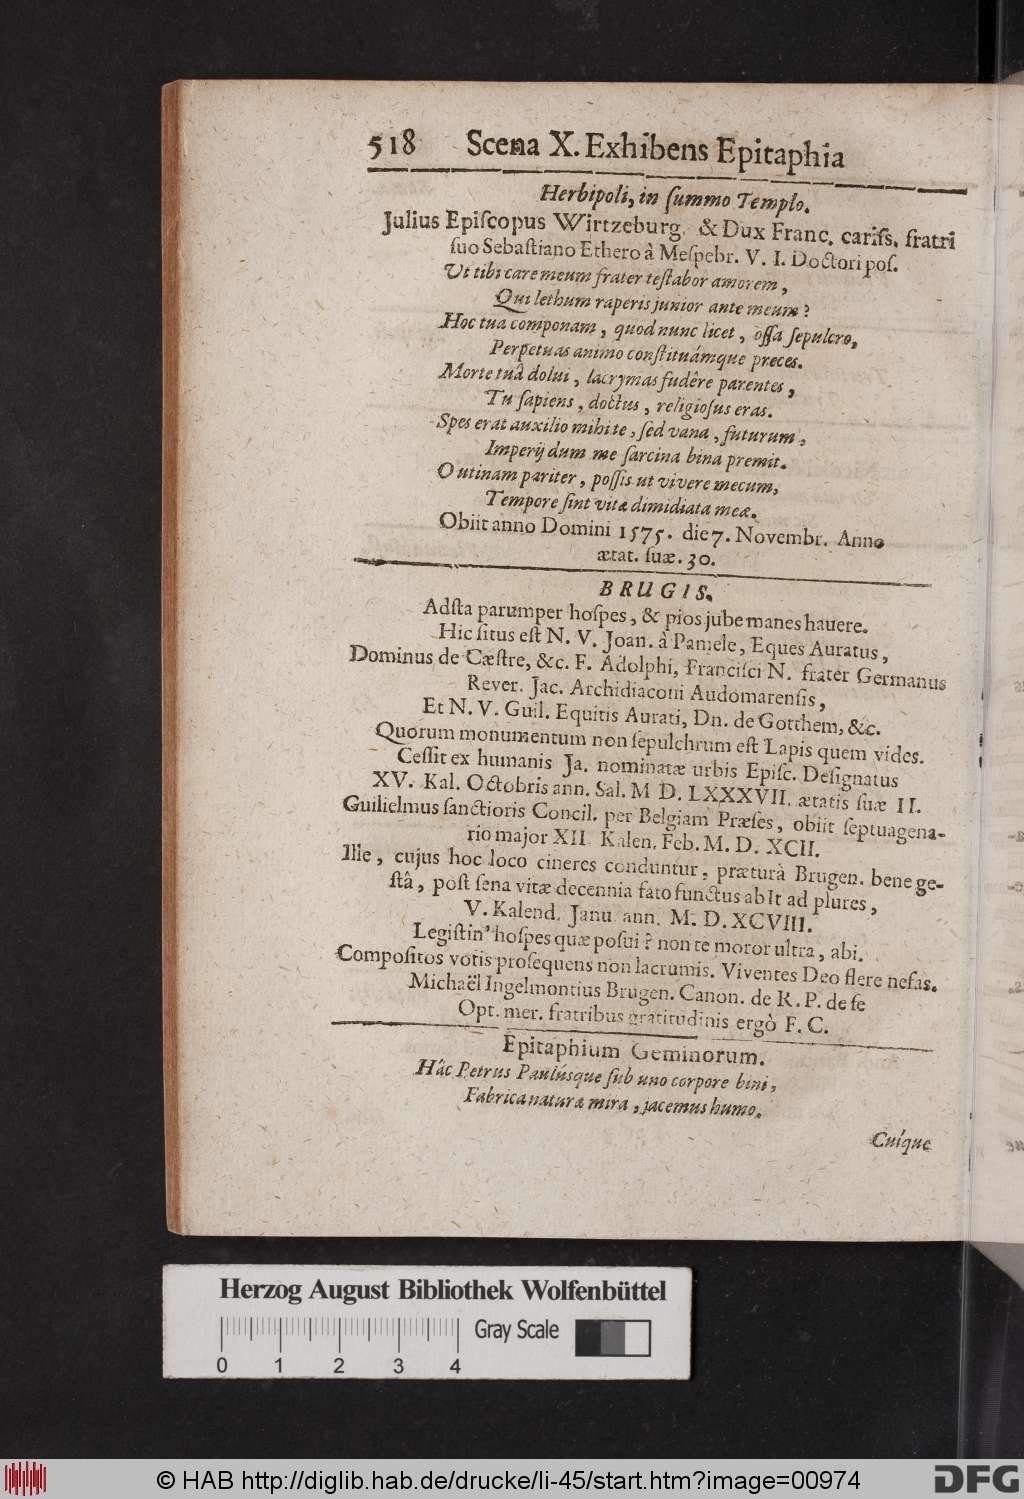 518 Scena X. Exhibens Epitaphia
Herbipoli, in ſummo Templo.
Julius Epiſcopus Wirtzeburg. & Dux Franc. cariſs. fratri
ſuo Sebaſtiano Ethero à Meſpebr. V. I. Doctori poſ.
Ut tibi care meum frater teſtabor amorem,
Qui lethum raperis junior ante meum?
Hoc tua componam, quod nunc licet, oſſa ſepulcro,
Perpetuas animo conſtituámque preces.
Morte tuâ dolui, lacrymas fudêre parentes,
Tu ſapiens, doctus, religioſus eras.
Spes erat auxilio mihi te, ſed vana, futurum,
Imperij dum me ſarcina bina premit.
O utinam pariter, poſſis ut vivere mecum,
Tempore ſint vitæ dimidiata meæ.
Obiit anno Domini 1575. die 7. Novembr. Anno
ætat. ſuæ. 30.
BRUGIS.
Adſta parumper hoſpes, & pios jube manes havere.
Hic ſitus eſt N. V. Joan. à Pamele, Eques Auratus,
Dominus de Cæſtre, &c. F. Adolphi, Franciſci N. frater Germanus
Rever. Jac. Archidiaconi Audomarenſis,
Et N. V. Guil. Equitis Aurati, Dn. de Gotthem, &c.
Quorum monumentum non ſepulchrum eſt Lapis quem vides.
Ceſſit ex humanis Ja. nominatæ urbis Epiſc. Deſignatus
XV. Kal. Octobris ann. Sal. M D. LXXXVII. ætatis ſuæ II.
Guilielmus ſanctioris Concil. per Belgiam Præſes, obiit ſeptuagena-
rio major XII. Kalen. Feb. M. D. XCII.
Ille, cujus hoc loco cineres conduntur, præturâ Brugen. bene ge-
ſtâ, poſt ſena vitæ decennia fato functus abIt ad plures,
V. Kalend. Janu. ann. M. D. XCVIII.
Legiſtin' hoſpes quæ poſui? non te moror ultra, abi.
Compoſitos votis proſequens non lacrumis. Viventes Deo flere nefas.
Michaël Ingelmontius Brugen. Canon. de R. P. de ſe
Opt. mer. fratribus gratitudinis ergò F. C.
Epitaphium Geminorum.
Hâc Petrus Paulúsque ſub uno corpore bini,
Fabrica naturæ mira, jacemus humo.
Cuíque
Herzog August Bibliothek Wolfenbüttel
Gray Scale
0 1 2 3 4
© HAB http://diglib.hab.de/drucke/li-45/start.htm?image=00974
DFG